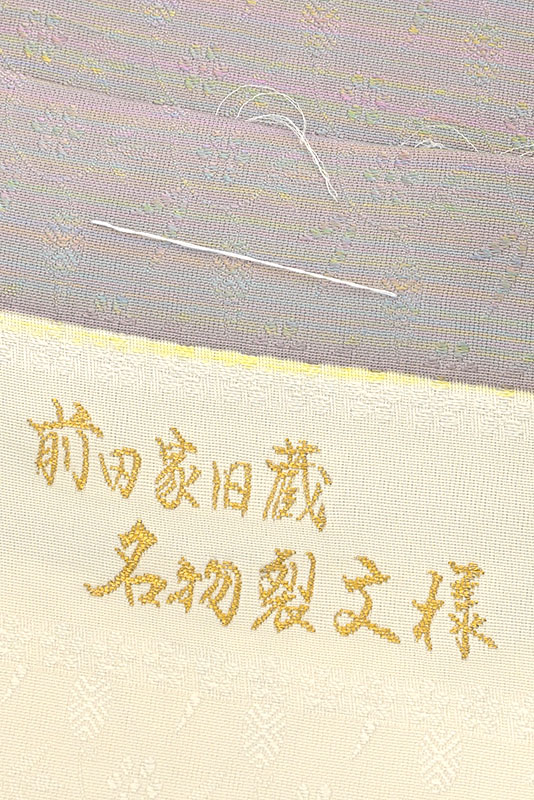 前田家旧蔵
名物裂文様